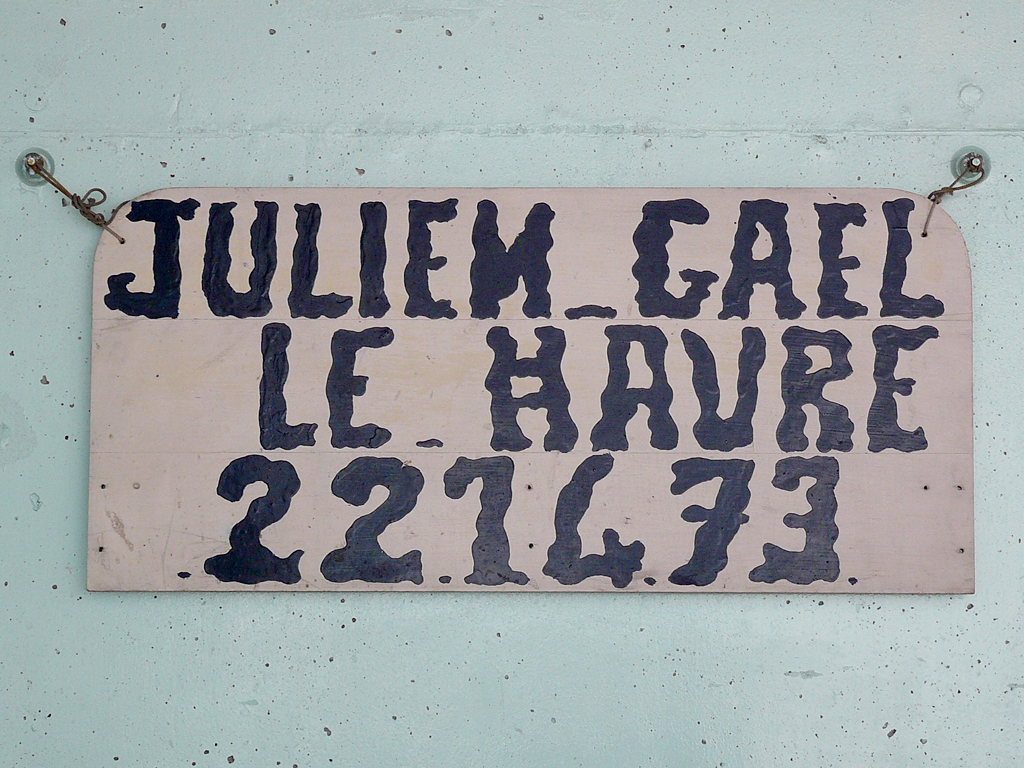 JULIEN_GAEL
LE_HAVRE
.22.14.73.